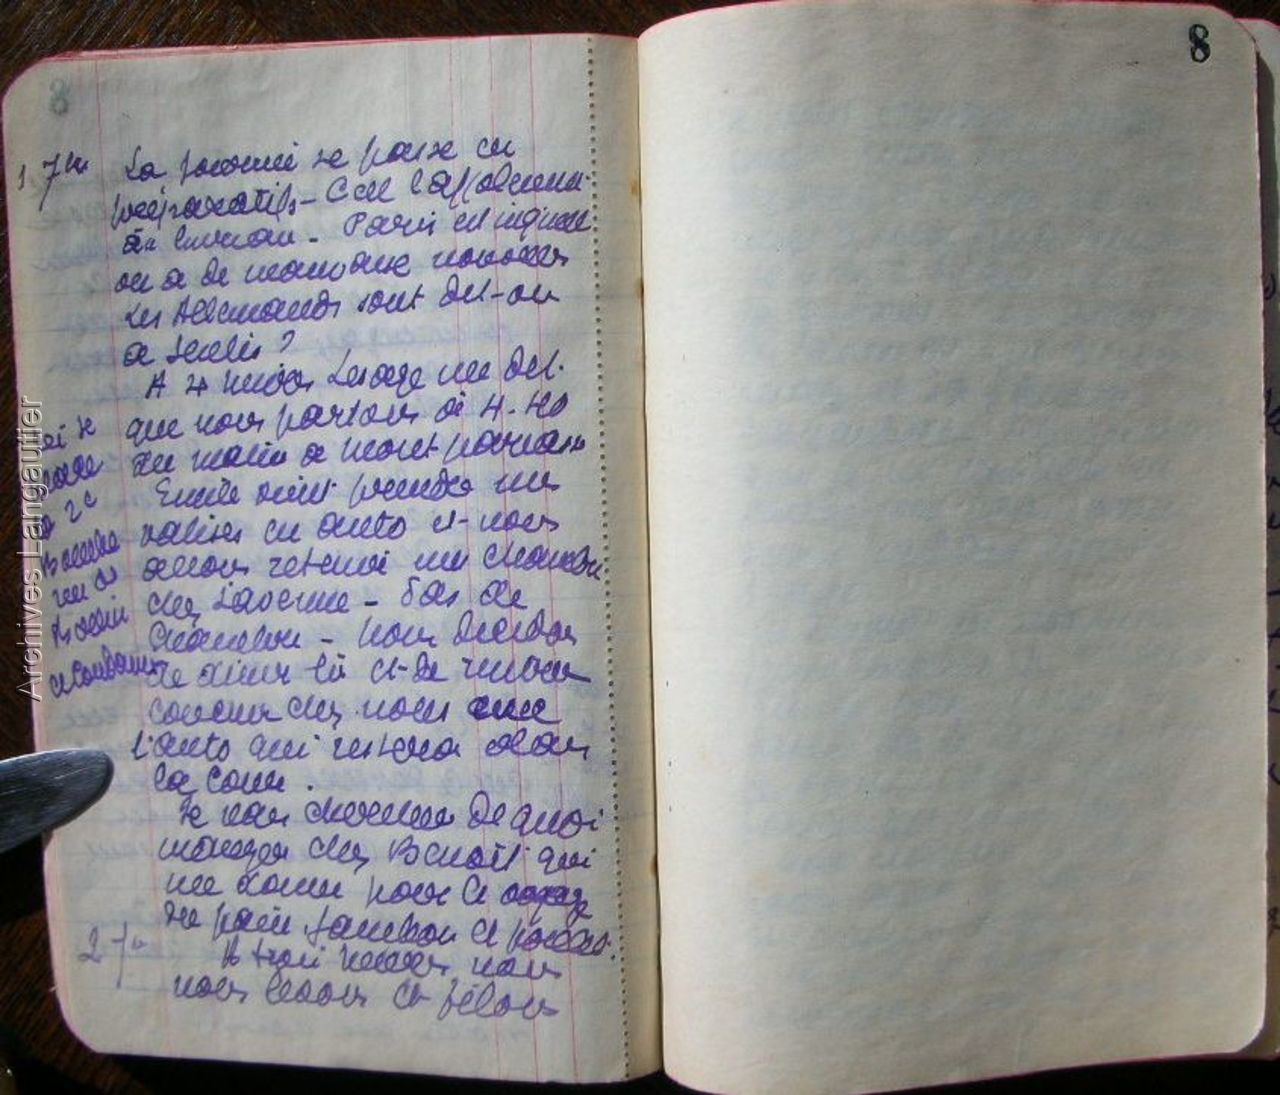 8
1 7bre La journée se passe en
préparatifs - C'est l'affolement
au bureau - Paris est inquiet
on a de mauvaises nouvelles
Les Allemands sont dit-on
à Senlis ?
A 4 heures Lesage me dit
que nous partons à 4.40
du matin à Montparnasse
Emile vient prendre mes
valises en auto et nous
allons retenir une chambre
chez Lavenue - Pas de
chambre - Nous décidons
de diner là et de revenir
coucher chez nous avec
l'auto qui restera dans
la cour.
Je vais chercher de quoi
manger chez Benoit qui
me donne pour le voyage
du pain jambon et poulet.
2 7bre A trois heures nous
nous levons et filons
8
Archives Langautier